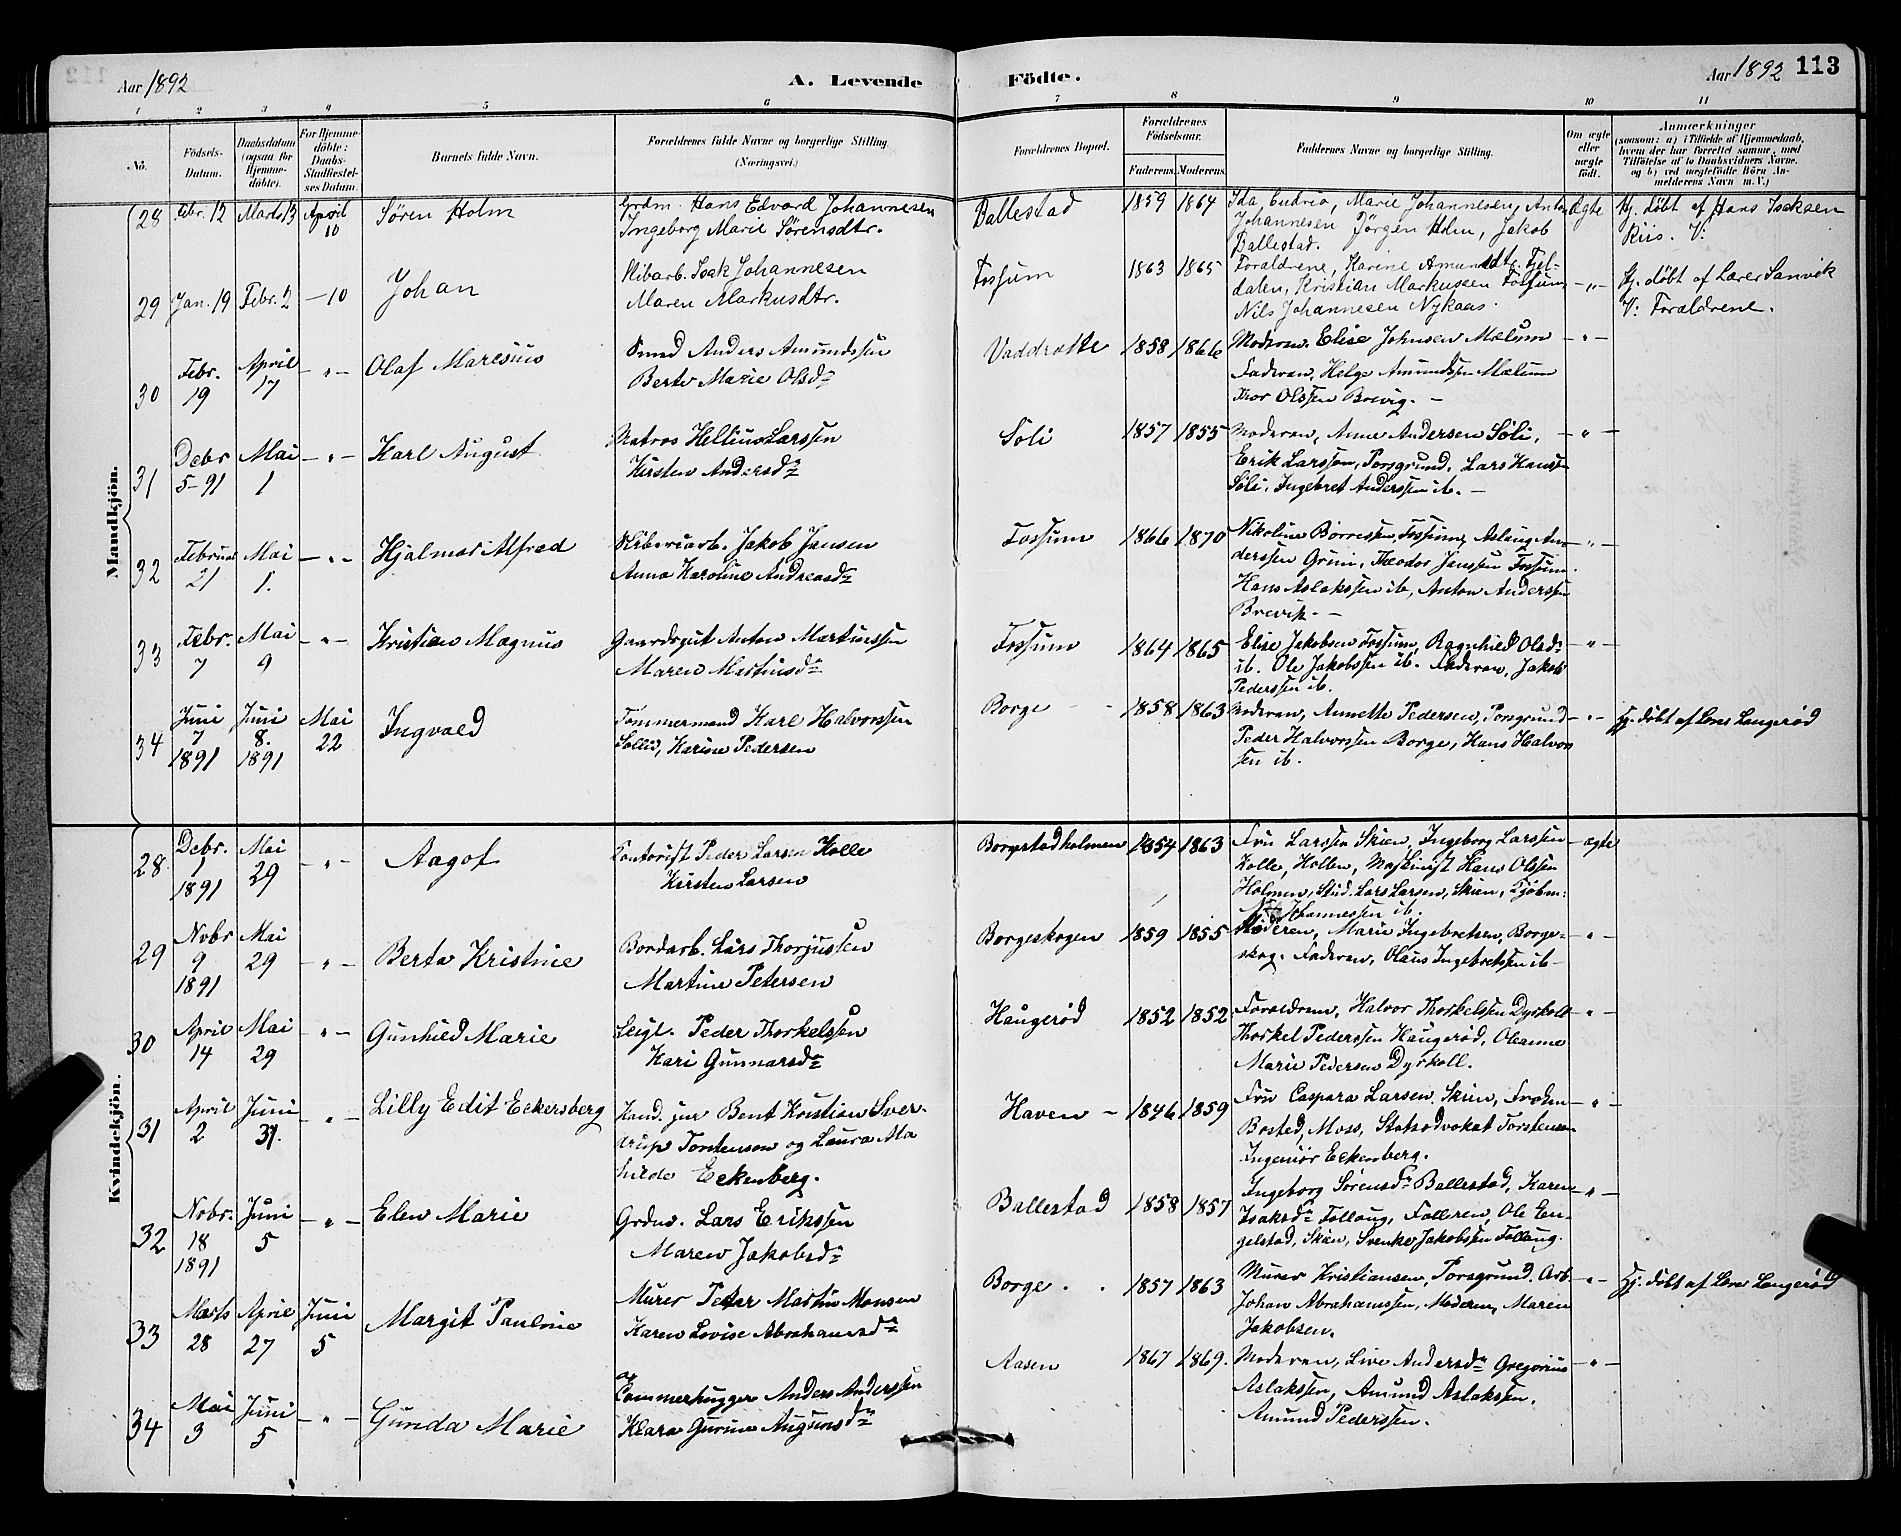 Aar 1892
A. Levende Födte.
Aar 1892 113
1 2 3 4 5 6 7 8 9 10 11
No.
Födsels-Datum.
Daabsdatum (ogsaa for Hjemme-döbte).
For Hjemme-döbte: Daabs-Stadfæstel-ses Datum.
Barnets fulde Navn.
Forældrenes fulde Navne og borgerlige Stilling (Næringsvei.)
Forældrenes Bopæl.
Forældrenes Födselsaar.
Faderens. Moderens.
Faddernes Navne og borgerlige Stilling.
Om ægte eller uægte födt.
Anmærkninger
(saasom: a) i Tilfælde af Hjemmedaab, hvem der har forrettet samme, med Tilföielse af to Daabsvidners Navne. og b) ved uægtefödte Börn An-melderens Navn m. V.)
Mandkjön.
28 Febr. 12 Marts 13 April 10 Søren Holm
Grdm. Hans Edvard Johannesen
Ingeborg Marie Sørensdtr.
Ballestad 1859 1864
Ida, Marie Johannesen, Anton
Johannesen Jörgen Holm, Jakob
Ballestad.
Ægte
Hj. döbt af Hans Isaksen
Riis. V:
29 Jan. 19 Febr. 2 - 10 Johan
Isak Johannesen
Maren Markusdtr.
Fossum 1863 1865
Foraldrene, Karine Amundsdtr. Fjel-
dalen, Kristian Markussen Fossum,
Nils Johannesen Nykaas.
-"-
Hj. döbt af Lærer Sanvik
V: Foraldrene.
30 Febr. 19 April 17 -"- Olaf Maresius
Smed Anders Amundssen
Berte Marie Olsdr
Vaddrette 1858 1866
Moderen, Elise Johnsen Mælum
Faderen, Helge Amundssen Mælum
Thor Olssen Brevig. -
-"-
31 Debr 5-91 Mai 1 -"- Karl August
Matros Hellius Larssen
Kirsten Andersdr
Soli 1857 1855
Moderen, Anne Andersen Søli,
Erik Larssen, Porsgrund, Lars Hansen
Søli, Ingebret Anderssen ib. -
-"-
32 Februar 21 Mai 1. -"- Hjalmar Alfred
Jakob Jansen
Anna Karoline Andreasdr
Fossum 1866 1870
Nikoline Börresen, Fossum, Aslaug An-
derssen Grini, Theodor Janssen Fossum.
Hans Aslakssen ib, Anton Anderssen
Brevik. -
-"-
33 Febr. 7 Mai 9 -"- Kristian Magnus
Gaardsgut Anton Martinssen
Maren Martinsdr
Fossum 1864 1865
Elise Jakobsen Fossum, Ragnhild Olsdr
ib. Ole Jakobssen ib. Faderen, Jakob
Pederssen ib.
-"-
34 Juni 7 1891 Juni 8. 1891 Mai 22 Ingvald
Tømmermand Karl Halvorssen
Karine Pedersen
Borge 1858 1863
Moderen, Annette Pedersen, Porsgrund
Peder Halvorssen Borge, Hans Halvor
sen ib.
-"-
Hj. döbt af Lærer Langerød
Kvindekjön.
28 Debr. 1 1891 Mai 29 -"- Aagot
Kontorist Peder Larsen Kolle
Kirsten Larsen
Borgestadholmen 1854 1863
Fru Larssen Skien, Ingeborg Larssen
Kolle, Hollen, Maskinist Hans Olssen
Holmen, Stud. Lars Larsen, Skien,
Johannessen ib.
ægte
29 Nobr 9 1891 Mai 29 -"- Berte Kristine
Bordarb. Lars Thorjussen
Martine Petersen
Borgeskogen 1859 1855
Moderen, Marie Ingebretsen, Borge-
skog. Faderen, Olaus Ingebretssen ib -
-"-
30 April 14 Mai 29 -"- Gunhild Marie
Leigl. Peder Thorkelssen
Kari Gunnarsdr
Haugerød 1852 1852
Forældrene, Halvor Thorkelssen Dyrkoll
Thorkel Pederssen Haugerød, Oleanne
Marie Pedersen Dyrkoll.
-"-
31 April 2 Juni 31. -"- Lilly Edit Eckersberg
Kand. jur Bent Kristian Sver-
drup Torstenson og Laura Ma
thilde Eckersberg.
Haven - 1846 1859
Fru Caspara Larsen, Skien, Frøken
Bosted, Moss, Statsadvokat Torstensen
Ingeniør Eckersberg.
-"-
32 Nobr. 18 1891 Juni 5 -"- Elen Marie
Grdm. Lars Erikssen
Maren Jakobsdr
Ballestad 1858 1857
Ingeborg Sörensdr Ballestad, Karen
Isaksdr Follaug, Faderen, Ole En-
gelstad, Skien, Svenke Jakobssen Follaug.
-"-
33 Marts 28 April 27 Juni 5 Margit Pauline
Murer Peder Martin Monsen
Karen Lovise Abrahamsdr
Borge. 1857 1863
Murer Kristiansen, Porsgrund, Arb.
Johan Abrahamssen, Moderen, Maren
Jakobsen.
-"-
Hj. döbt af Lærer Langerød
34 Mai 3 Juni 5 -"- Gunda Marie
Tømmerhugger Anders Anderssen
Klara Gurine Augunsdr
Aasen 1867 1869.
Moderen, Live Andersdr Gregorius
Aslakssen, Amund Aslaksen.
Amund Pederssen.
-"-